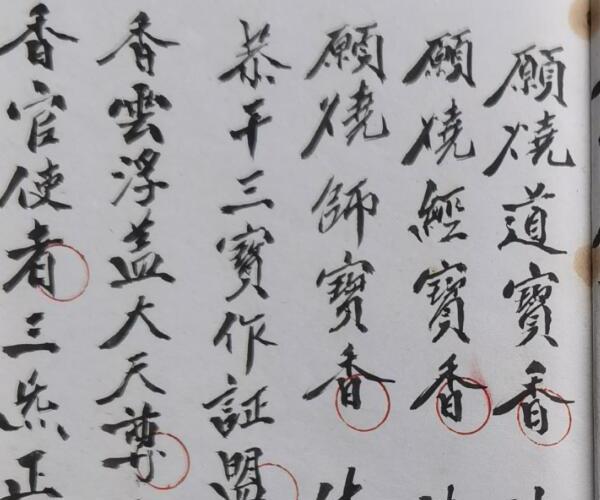 願燒道寶香
願燒經寶香
願燒師寶香
恭干三寶作証盟
香雲浮盖大天尊
香官使者三炁正